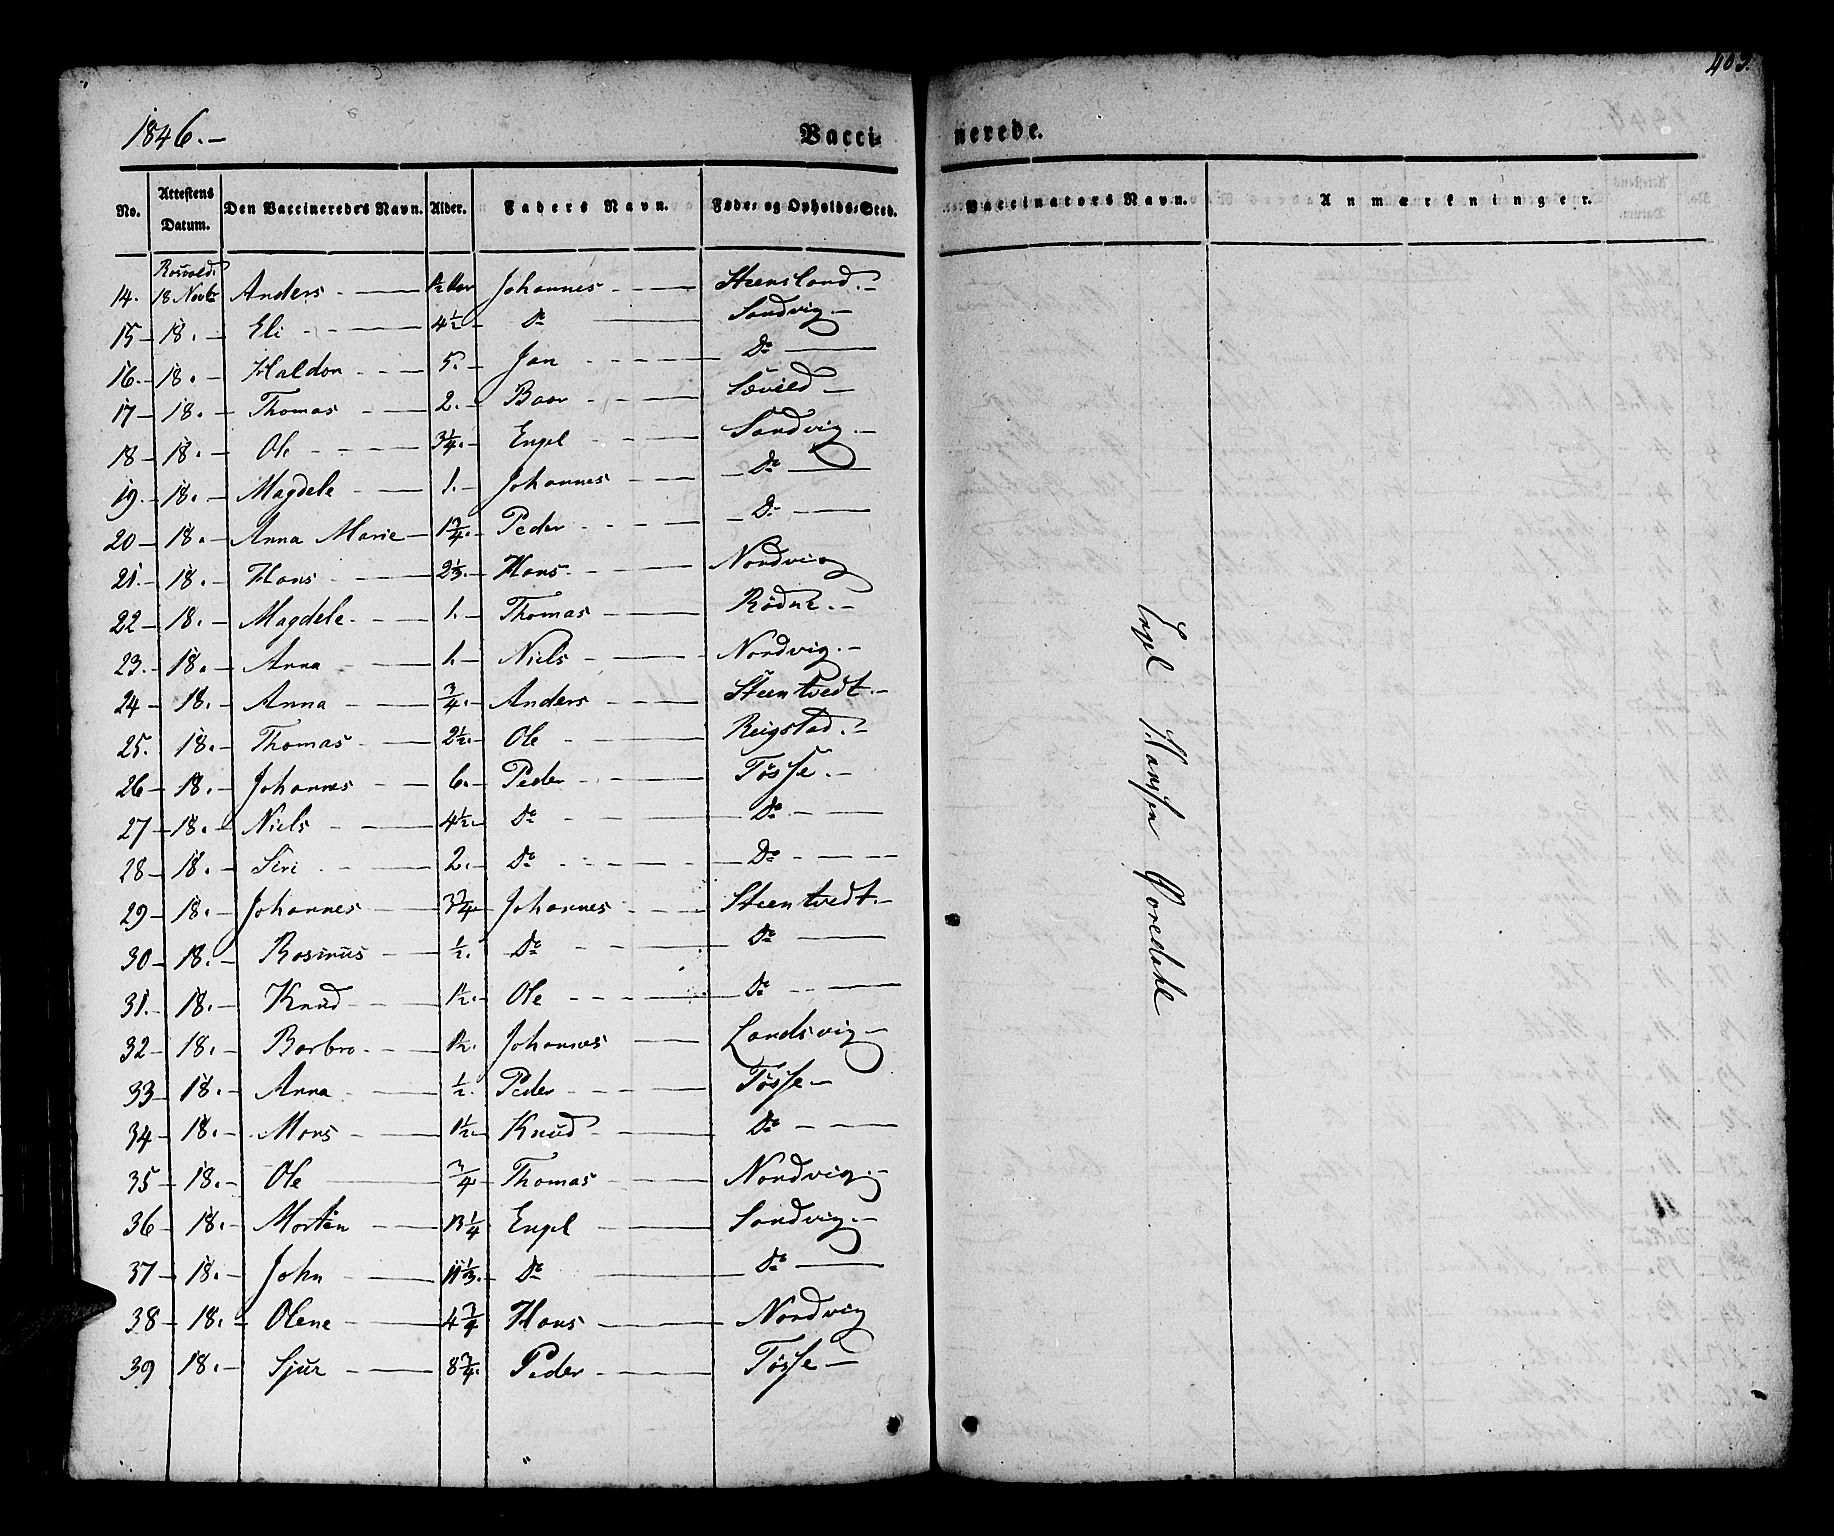 1846.—
Vaccinerede.
No. | Attestens Datum. | Den Vaccineredes Navn. | Alder. | Faders Navn. | Føde- og Opholds-Sted. | Vaccinators Navn. | Anmærkninger.
14. 18 Novbr Anders — 1½ Aar Johannes — Steensland.—
15 — 18. — Eli — 4½ — Do — Sandvig.—
16. — 18. — Haldor — 5. — Jan — Do —
17 — 18. — Thomas — 2. — Baar — Sævild —
18 — 18. — Ole — 3¼. — Engel — Sandvig.—
19. — 18. — Magdele — 1. — Johannes — Do —
20 — 18. — Anna Marie — 1¾. — Peder — Do —
21. — 18. — Hans — 2⅓. — Hans — Nordvig
22 — 18. — Magdele — 1. — Thomas — Rødne.—
23. — 18. — Anna — 1. — Niels — Nordvig.—
24 — 18. — Anna — ¾. — Anders — Steentvedt.—
25. 18. — Thomas — 2½. — Ole — Reigstad.—
26 — 18. — Johannes — 6. — Peder — Tösse.—
27 — 18. — Niels — 4½. — Do — Do —
28 — 18. — Siri — 2. — Do — Do —
29 — 18. — Johannes — 3¾ Johannes — Steentvedt.—
30 — 18. — Rasmus — ½. — Do — Do —
31. — 18. — Knud — 1½. — Ole — Do —
32 — 18. — Barbro — 1½. Johannes — Landsvig —
33 — 18. — Anna — ½. Peder — Tösse —
34 — 18. — Mons — 1½. — Knud — Do —
35 — 18. — Ole — ¾ Thomas — Nordvig.—
36 — 18. — Morten — 13¼ Engel — Sandvig.—
37 — 18. — John — 11⅓. — Do — Do —
38 — 18. — Olene — 4¾ Hans — Nordvig
39 18. — Sjur — 8¾. Peder — Tösse —
Engel Hansen